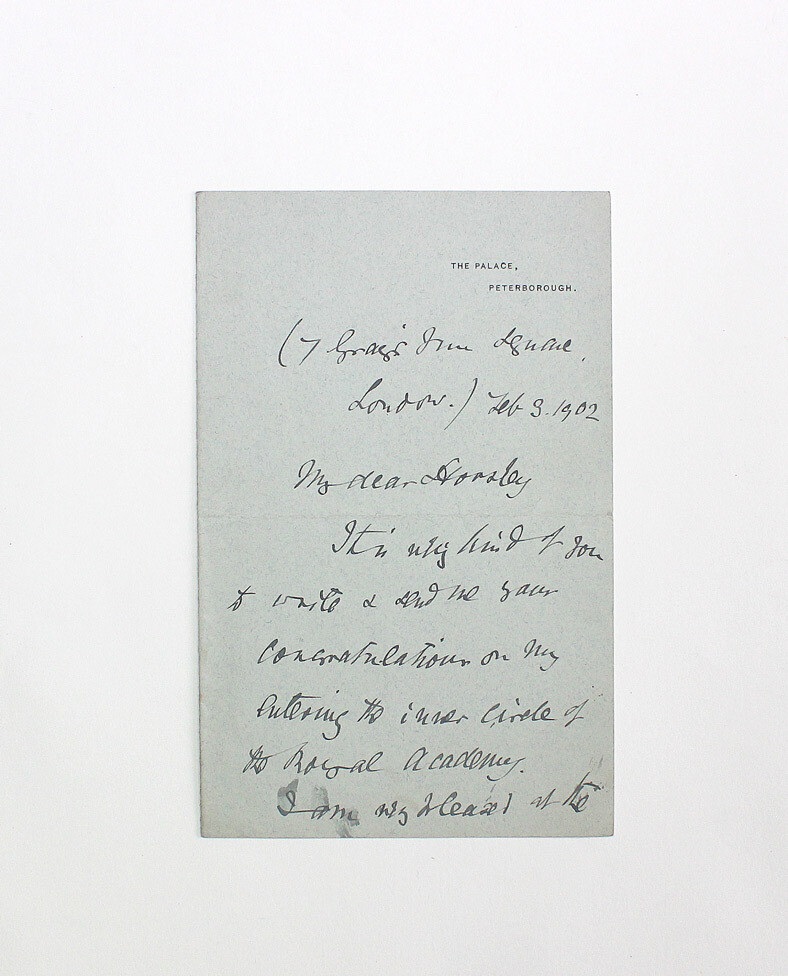 THE PALACE,
PETERBOROUGH.
(7 Gray's Inn Square,
London.) Feb 3. 1902
My dear Horsley
It is very kind of you
to write & send me your
congratulations on my
entering the inner circle of
the Royal Academy.
I am very pleased at the